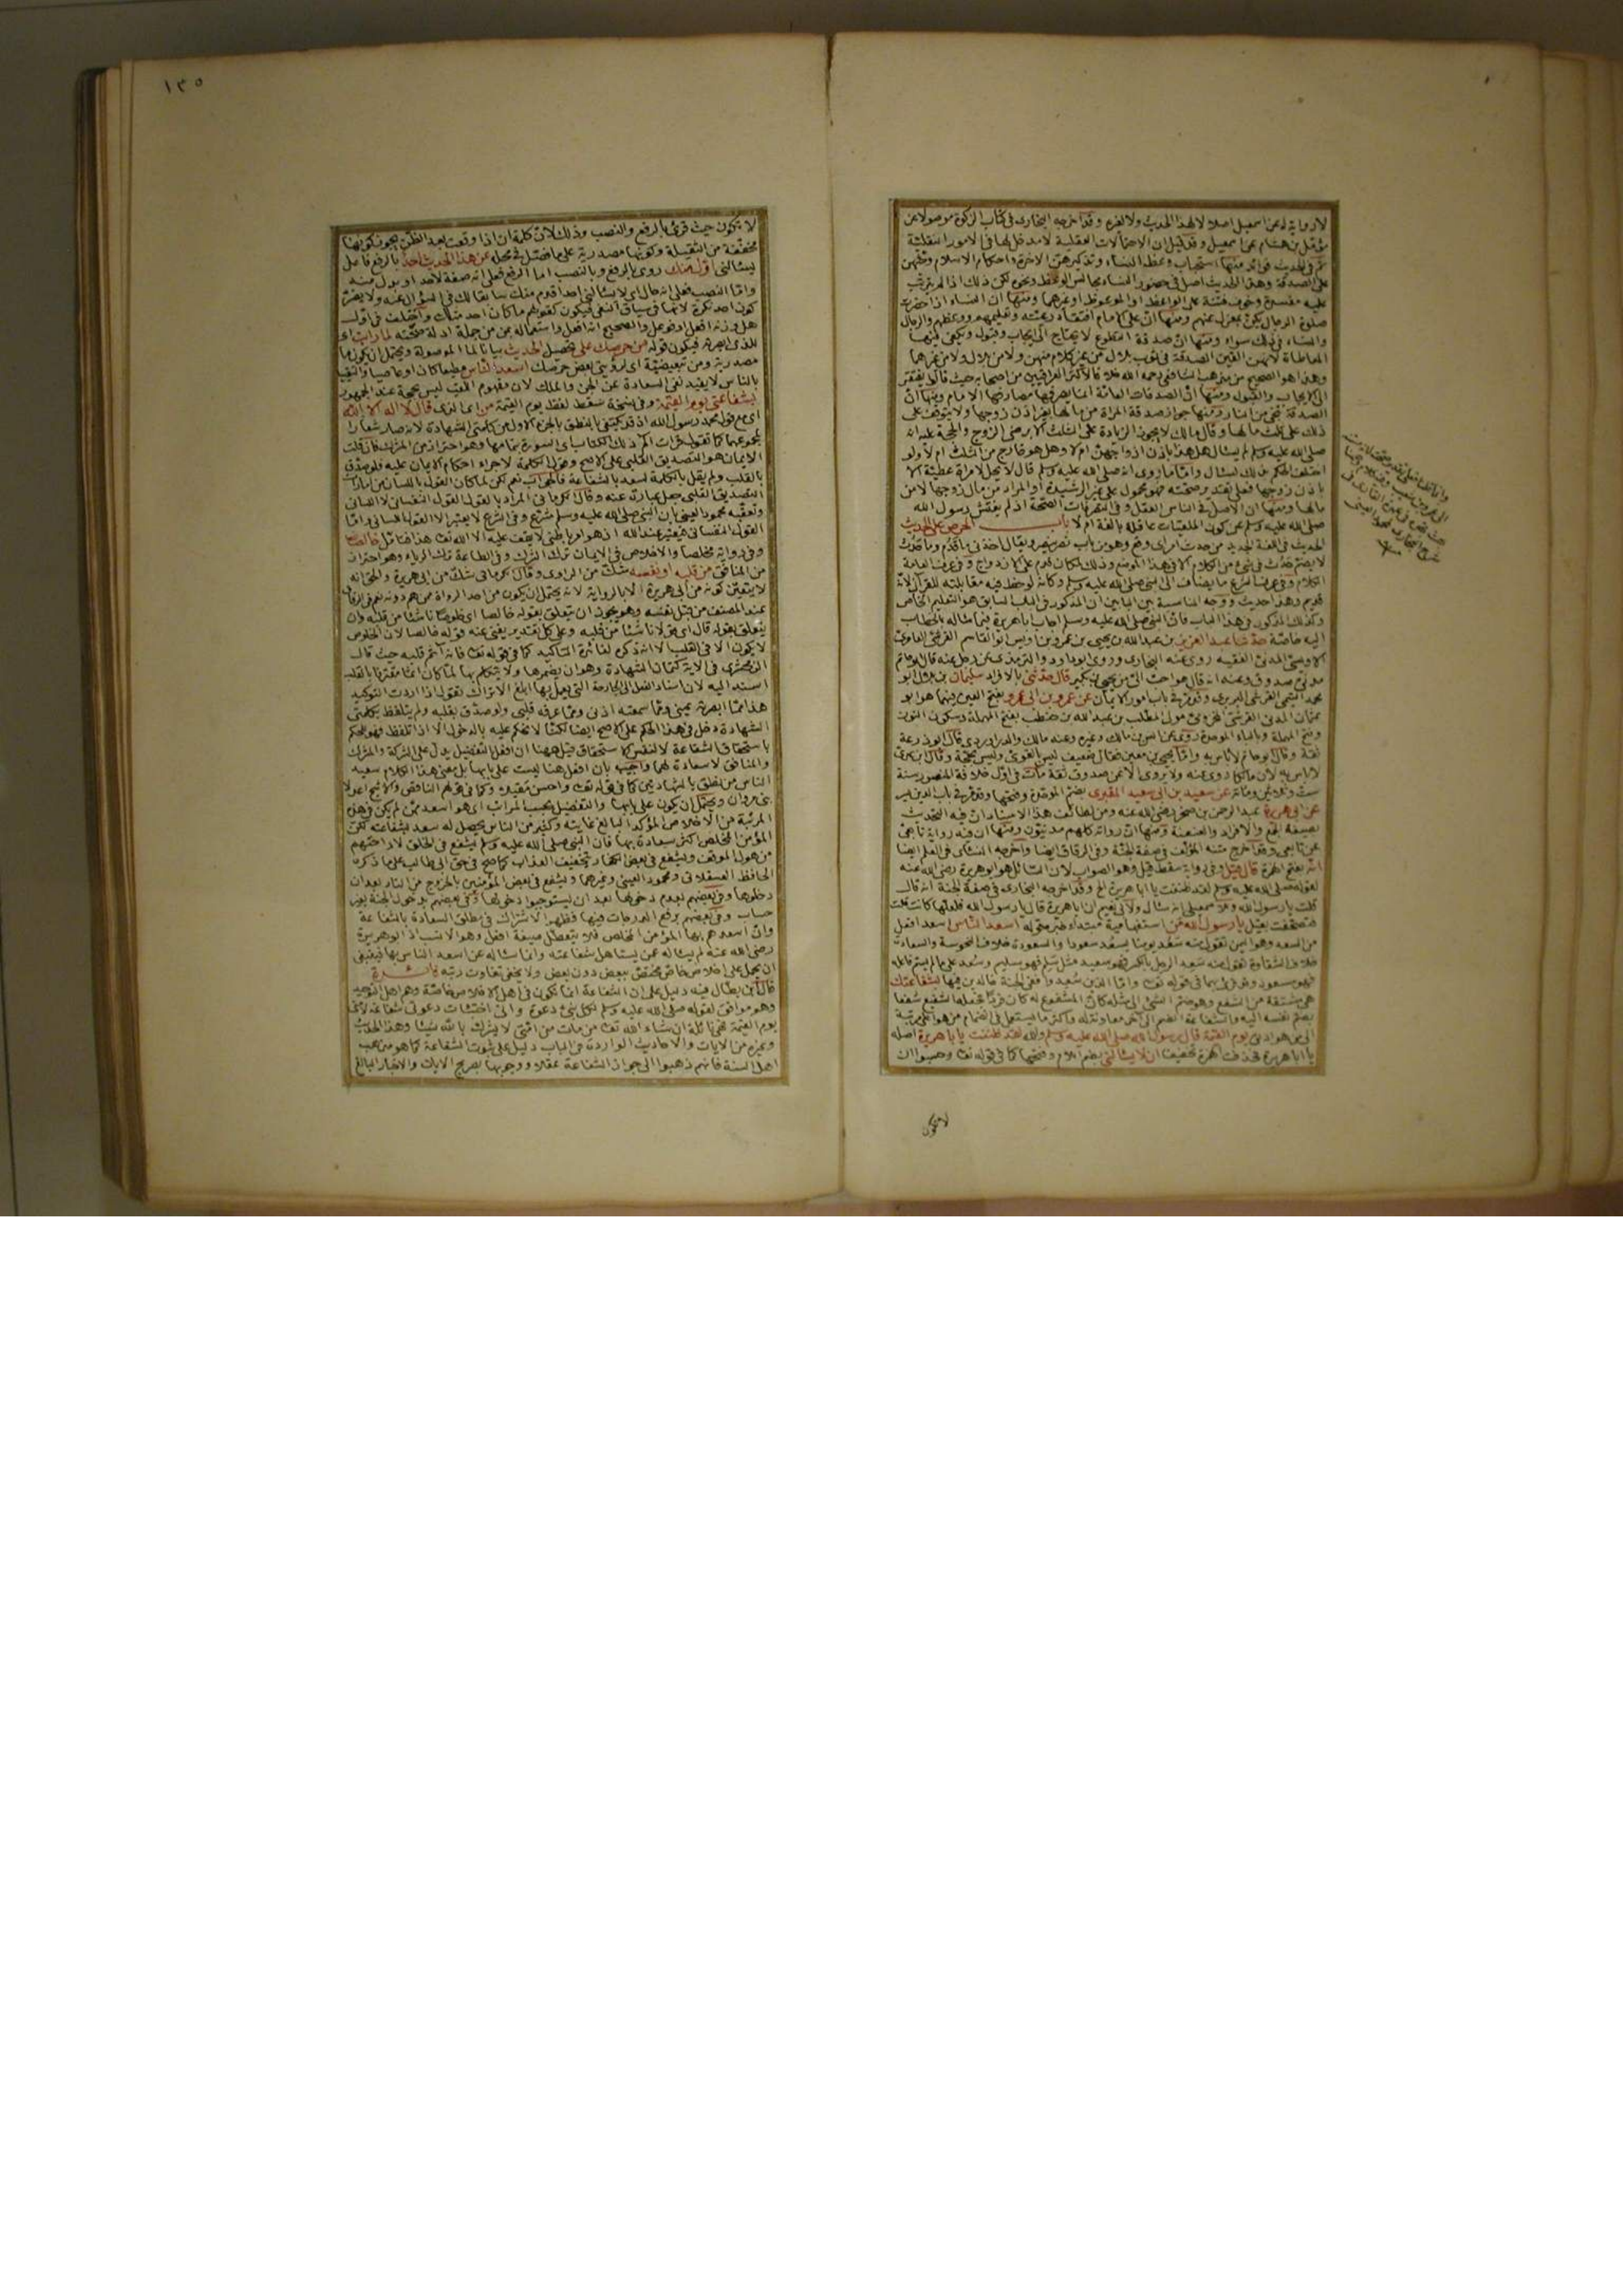 لا رواية له عن اسمعيل اصلا لا لهذا الحديث ولا لغيره وقد اخرجه البخارى فى كتاب الزكوة موصولا عن
مؤمل بن هشام عن اسمعيل وقد قيل ان الاحتمالات العقلية لا مدخل لها فى الامور النقلية
ثم فى الحديث فوائد منها استحباب وعظ النساء وتذكيرهن الاخرة واحكام الاسلام وحثهن
على الصدقة وهذا الحديث اصل فى حضور النساء مجالس الوعظ ونحوه لكن ذلك اذا لم يترتب
عليه مفسدة وخوف فتنة على الواعظ او الموعوظ او غيرهما ومنها ان النساء اذا حضرن
صلوة الرجال يكن بمعزل عنهم ومنها ان على الامام افتقاد رعيته وتعليمهم ووعظهم والرجال
والنساء فى ذلك سواء ومنها ان صدقة التطوع لا يحتاج الى ايجاب وقبول ويكفى فيها
المعاطاة لانهن القين الصدقة فى ثوب بلال من غير كلام منهن ولا من بلال ولا من غيرهما
وهذا هو الصحيح من مذهب الشافعى رحمه الله خلافا لاكثر العراقيين من اصحابه حيث قالوا يفتقر
الى الايجاب والقبول ومنها ان الصدقات العامة انما يصرفها مصارفها الامام ومنها ان
الصدقة تنجى من النار ومنها جواز صدقة المراة من مالها بغير اذن زوجها ولا يتوقف على
ذلك على ثلث مالها وقال مالك لا يجوز الزيادة على الثلث الا برضى الزوج والحجة عليه انه
صلى الله عليه وسلم لم يسال هل هذا باذن ازواجهن ام لا وهل هو خارج من الثلث ام لا ولو
اختلف الحكم بذلك لسئال وامّا ما روى انه صلى الله عليه وسلم قال لا يحل لامراة عطية الا
باذن زوجها فعلى تقدير صحته فهو محمول على غير الرشيدة او المراد من مال زوجها لا من
مالها ومنها ان الاصل فى الناس العقل وفى التصرفات الصحة اذ لم يفتش رسول الله
صلى الله عليه وسلم عن كون المعطيات عاقلة بالغة ام لا باب الحرص على الحديث
الحديث فى اللغة الجديد من حدث امر اى وقع وهو من باب نصر ينصر ويقال اخذنى ما قدم وما حدث
لا يضم حدث فى شئ من الكلام الا فى هذا الموضع وذلك لمكان قدم على الازدواج وفى عرف العامة
الكلام وفى عرف الشرع ما يضاف الى النبى صلى الله عليه وسلم وكانه لوحظ فيه مقابلته للقرآن لانه
قديم وهذا حديث ووجه المناسبة بين البابين ان المذكور فى الباب السابق هو التعليم الخاص
وكذلك المذكور فى هذا الباب فان النبى صلى الله عليه وسلم اجاب ابا هريرة فيما ساله بالخطاب
اليه خاصة حدثنا عبد العزيز بن عبد الله بن يحيى بن عمرو بن اويس ابو القاسم القرشى العامرى
الاويسى المدنى الفقيه روى عنه البخارى وروى ابو داود والترمذى عن رجل عنه قال ابو حاتم
مدنى صدوق وعنه انه قال هو احب الىّ من يحيى بن بكير قال حدثنى بالافراد سليمان بن بلال ابو
محمد التيمى القرشى البربرى وقد مر فى باب امور الايمان عن عمرو بن ابى عمرو بفتح العين فيهما هو ابو
عثمان المدنى القرشى المخزومى مولى المطلب بن عبد الله بن حنطب بفتح المهملة وسكون النون
وفتح المهملة وبالباء الموحدة روى عن انس بن مالك وغيره وعنه مالك والدراوردى قال ابو زرعة
ثقة وقال ابو حاتم لا باس به وامّا يحيى بن معين فقال ضعيف ليس بالقوى وليس بحجة وقال ابن عدى
لا باس به لان مالكا روى عنه ولا يروى الا عن صدوق ثقة مات فى اول خلافة المنصور سنة
ست وثلاثين ومائة عن سعيد بن ابى سعيد المقبرى بضم الموحدة وفتحها وقد مر فى باب الدين يسر
عن ابى هريرة عبد الرحمن بن صخر رضى الله عنه ومن لطائف هذا الاسناد ان فيه التحديث
بصيغة الجمع والافراد والعنعنة ومنها ان رواته كلهم مدنيون ومنها ان فيه رواية تابعى
عن تابعى وقد اخرج متنه المؤلف فى صفة الجنة وفى الرقاق ايضا واخرجه النسائى فى العلم ايضا
انه بفتح الهمزة قال قيل وفى رواية سقط قيل وهو الصواب لان السائل هو ابو هريرة رضى الله عنه
لقوله صلى الله عليه وسلم لقد ظننت يا ابا هريرة الخ وقد اخرجه البخارى فى صفة الجنة انه قال
قلت يا رسول الله وللاسمعيلى انه سئال ولابى نعيم ان ابا هريرة قال يا رسول الله فلعلها كانت قلت
فتصحفت بقيل يا رسول الله من استفهامية مبتداء خبره قوله اسعد الناس اسعد افعل
من السعد وهو اليمن تقول منه سعد يومنا يسعد سعودا والسعودة خلاف النحوسة والسعادة
خلاف الشقاوة تقول منه سعد الرجل بالكسر فهو سعيد مثل سلم فهو سليم وسعد على ما لم يسم فاعله
فهو مسعود وقرئ بهما فى قوله تعا وامّا الذين سعدوا ففى الجنة خالدين فيها بشفاعتك
هى مشتقة من الشفع وهو ضم الشئ الى مثله كان المشفوع له كان فردا فجعله الشفيع شفعا
بضم نفسه اليه والشفاعة الضم الى اخر معاونة له واكثر ما يستعمل فى انضمام من هو اعلى مرتبة
الى من هو ادنى يوم القيمة قال رسول الله صلى الله عليه وسلم والله لقد ظننت يا ابا هريرة اصله
يا ابا هريرة فحذفت الهمزة تخفيفا ان لا يسالنى بضم اللام وفتحها كما فى قوله تعا وحسبوا ان
لا تكون
١٣٥
لا تكون حيث قرئ بالرفع والنصب وذلك لان كلمة ان اذا وقعت بعد الظن يجوز كونها
مخففة من الثقيلة وكونها مصدرية على ما فصل فى محله عن هذا الحديث احد بالرفع فاعل
يسالنى اول منك روى بالرفع وبالنصب اما الرفع فعلى انه صفة لاحد او بدل منه
وامّا النصب فعلى انه حال اى لا يسالنى احد اقدم منك سابقا لك فى السؤال عنه ولا يضر
كون احد نكرة لانها فى سياق النفى فيكون كقولهم ما كان احد مثلك واختلف فى اول
هل وزنه افعل او فوعل والصحيح انه افعل واستعماله بمن من جملة ادلة صحته لما رايت اى
للذى رايته فيكون قوله من حرصك على تحصيل الحديث بيانا لما الموصولة ويحتمل ان يكون ما
مصدرية ومن تبعيضية اى لرؤيتى بعض حرصك اسعد الناس مطيعا كان او عاصيا والتقييد
بالناس لا يفيد نفى السعادة عن الجن والملك لان مفهوم اللقب ليس بحجة عند الجمهور
بشفاعتى يوم القيمة وفى نسخة سقط لفظ يوم القيمة من قال لا اله الا الله
اى مع قوله محمد رسول الله اذ قد يكتفى بالنطق بالجزء الاول من كلمتى الشهادة لانه صار شعارا
لمجموعهما كما تقول قرات الم ذلك الكتاب اى السورة بتمامها وهو احتراز من المشرك فان قلت
الايمان هو التصديق القلبى على الاصح وقول الكلمة لاجراء احكام الايمان عليه فلو صدق
بالقلب ولم يقل بالكلمة لسعد بالشفاعة فالجواب نعم لكن لما كان القول باللسان من امارات
التصديق القلبى جعل عبارة عنه وقال الكرمانى المراد بالقول القول النفسانى لا اللسانى
وتعقبه محمود العينى بان النبى صلى الله عليه وسلم مشرع وفى الشرع لا يعتبر الا القول اللسانى وامّا
القول النفسانى فيعتبر عند الله اذ هو امر باطنى لا يقف عليه الا الله تعا هذا فتامل خالصا
وفى رواية مخلصا والاخلاص فى الايمان ترك الشرك وفى الطاعة ترك الرياء وهو احتراز
من المنافق من قلبه او نفسه شك من الراوى وقال الكرمانى شك من ابى هريرة والحق انه
لا يتعين كونه من ابى هريرة الا بالرواية لانه يحتمل ان يكون من احد الرواة ممن هم دونه نعم فى الرقاق
عند المصنف من قبل نفسه وهو يجوز ان يتعلق بقوله خالصا اى خلوصا ناشئا من قلبه وان
يتعلق بقوله قال اى قولا ناشئا من قلبه وعلى كل تقدير يغنى عنه قوله خالصا لان الخلوص
لا يكون الا فى القلب الا انه ذكره لفائدة التاكيد كما فى قوله تعا فانه آثم قلبه حيث قال
الزمخشرى فى الاية كتمان الشهادة وهو ان يضمرها ولا يتكلم بها لما كان اثما مقترفا بالقلب
اسند اليه لان اسناد الفعل الى الجارحة التى يعمل بها ابلغ الا تراك تقول اذا اردت التوكيد
هذا ممّا ابصرته عينى وممّا سمعته اذنى وممّا عرفه قلبى ولو صدق بقلبه ولم يتلفظ بكلمتى
الشهادة دخل فى هذا الحكم على الاصح ايضا لكنا لا نحكم عليه بالدخول الا اذا تلفظ فهو للحكم
باستحقاق الشفاعة لا لنفس الاستحقاق قيل هنا ان افعل التفضيل يدل على الشركة والمشرك
والمنافق لا سعادة لهما واجيب بان افعل هنا ليست على بابها بل معنى هذا الكلام سعيد
الناس من نطق بالشهادتين كما فى قوله تعا واحسن مقيلا وكما فى قولهم الناقص والاشج اعدلا
بنى مروان ويحتمل ان يكون على بابها والتفضيل بحسب المراتب اى هو اسعد ممن لم يكن فى هذه
المرتبة من الاخلاص المؤكد البالغ غايته وكثير من الناس يحصل له سعد بشفاعته لكن
المؤمن المخلص اكثر سعادة بها فان النبى صلى الله عليه وسلم يشفع فى الخلق لاراحتهم
من هول الموقف ويشفع فى بعض الكفار بتخفيف العذاب كما صح فى حق ابى طالب على ما ذكره
الحافظ العسقلانى ومحمود العينى وغيرهما ويشفع فى بعض المؤمنين بالخروج من النار بعد ان
دخلوها وفى بعضهم بعدم دخولها بعد ان يستوجبوا دخولها وفى بعضهم بدخول الجنة بغير
حساب وفى بعضهم برفع الدرجات فيها فظهر الاشتراك فى مطلق السعادة بالشفاعة
وان اسعدهم بها المؤمن المخلص فلا يتعطل صيغة افعل وهو الانسب اذ ابو هريرة
رضى الله عنه لم يسئاله عمن يستاهل شفاعته وانما سئاله عن اسعد الناس بها فينبغى
ان يحمل على اخلاص خاص مختص ببعض دون بعض ولا يخفى تفاوت رتبه فائدة
قال ابن بطال فيه دليل على ان الشفاعة انما تكون فى اهل الاخلاص خاصة وهم اهل التوحيد
وهو موافق لقوله صلى الله عليه وسلم لكل نبى دعوة وانى اختبات دعوتى شفاعة لامتى
يوم القيمة فهى نائلة ان شاء الله تعا من مات من امتى لا يشرك بالله شيئا وهذا الحديث
وغيره من الايات والاحاديث الواردة فى الباب دليل على ثبوت الشفاعة كما هو مذهب
اهل السنة فانهم ذهبوا الى جواز الشفاعة عقلا ووجوبها بصريح الايات والاخبار البالغ